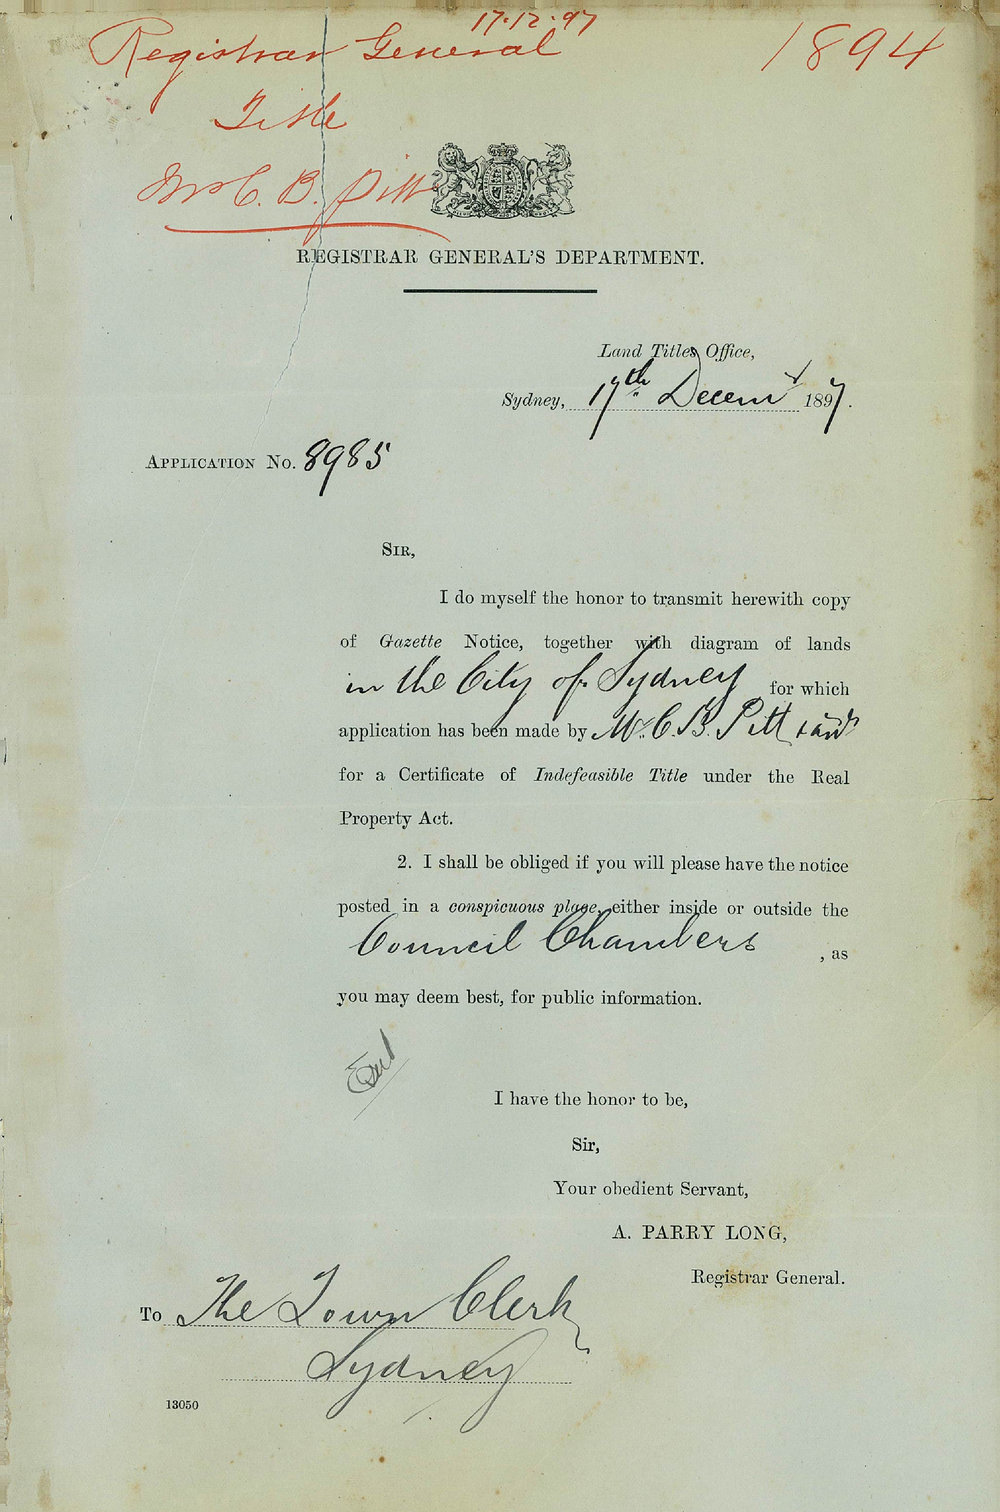 17.12.97
Registrar General
1894
Title
Mr C. B. Pitt
REGISTRAR GENERAL'S DEPARTMENT.
Land Titles Office,
Sydney, 17th Decemr 1897.
APPLICATION No. 8985
SIR,
I do myself the honor to transmit herewith copy
of Gazette Notice, together with diagram of lands
in the City of Sydney for which
application has been made by Mr. C. B. Pitt
for a Certificate of Indefeasible Title under the Real
Property Act.
2. I shall be obliged if you will please have the notice
posted in a conspicuous place, either inside or outside the
Council Chambers, as
you may deem best, for public information.
I have the honor to be,
Sir,
Your obedient Servant,
A. PARRY LONG,
Registrar General.
To The Town Clerk
Sydney
13050